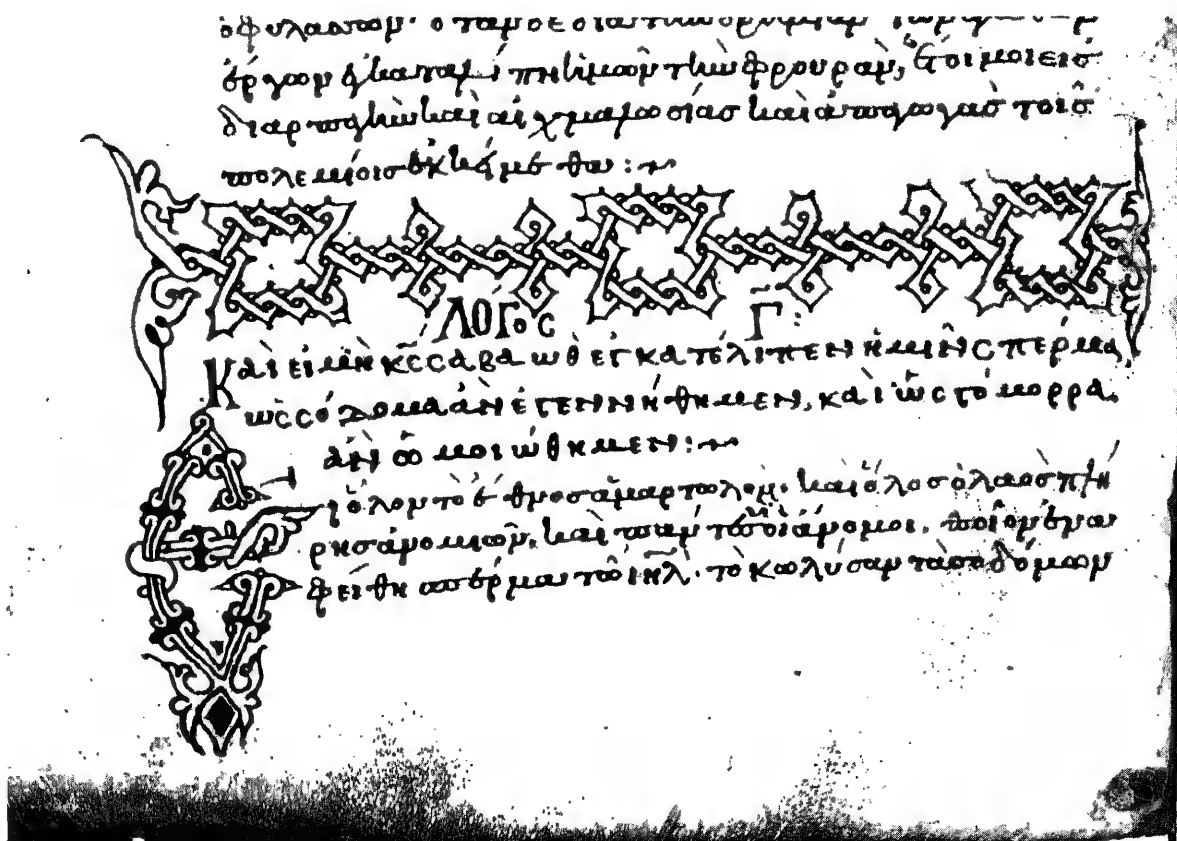 ὀφυλάττων· ὅταν δὲ διὰ τὴν
ἔργων ἐγκαταλίπη ἡμῶν τὴν φρουρὰν, ἕτοιμοι εἰς
διαρπαγὴν καὶ αἰχμαλωσίας καὶ ἀπαγωγὰς τοῖς
πολεμίοις ἐκκείμεθα :
ΛΟΓος Γ :
Καὶ εἰ μὴ κς σαβαωθ ἐγκατέλιπεν ἡμῖν σπέρμα,
ὡς σόδομα ἂν ἐγεννήθημεν, καὶ ὡς γόμορρα
ἂν ὁμοιώθημεν :
Εἰ ὅλον τὸ ἔθνος ἁμαρτωλὸν· καὶ ὅλος ὁ λαὸς πλή
ρης ἀνομιῶν, καὶ πάντες οἱ ἄνομοι, ποῖον ἐνα
φείθη σπέρμα τῶ ιηλ· τὸ κωλύσαν τὰ σοδόμων